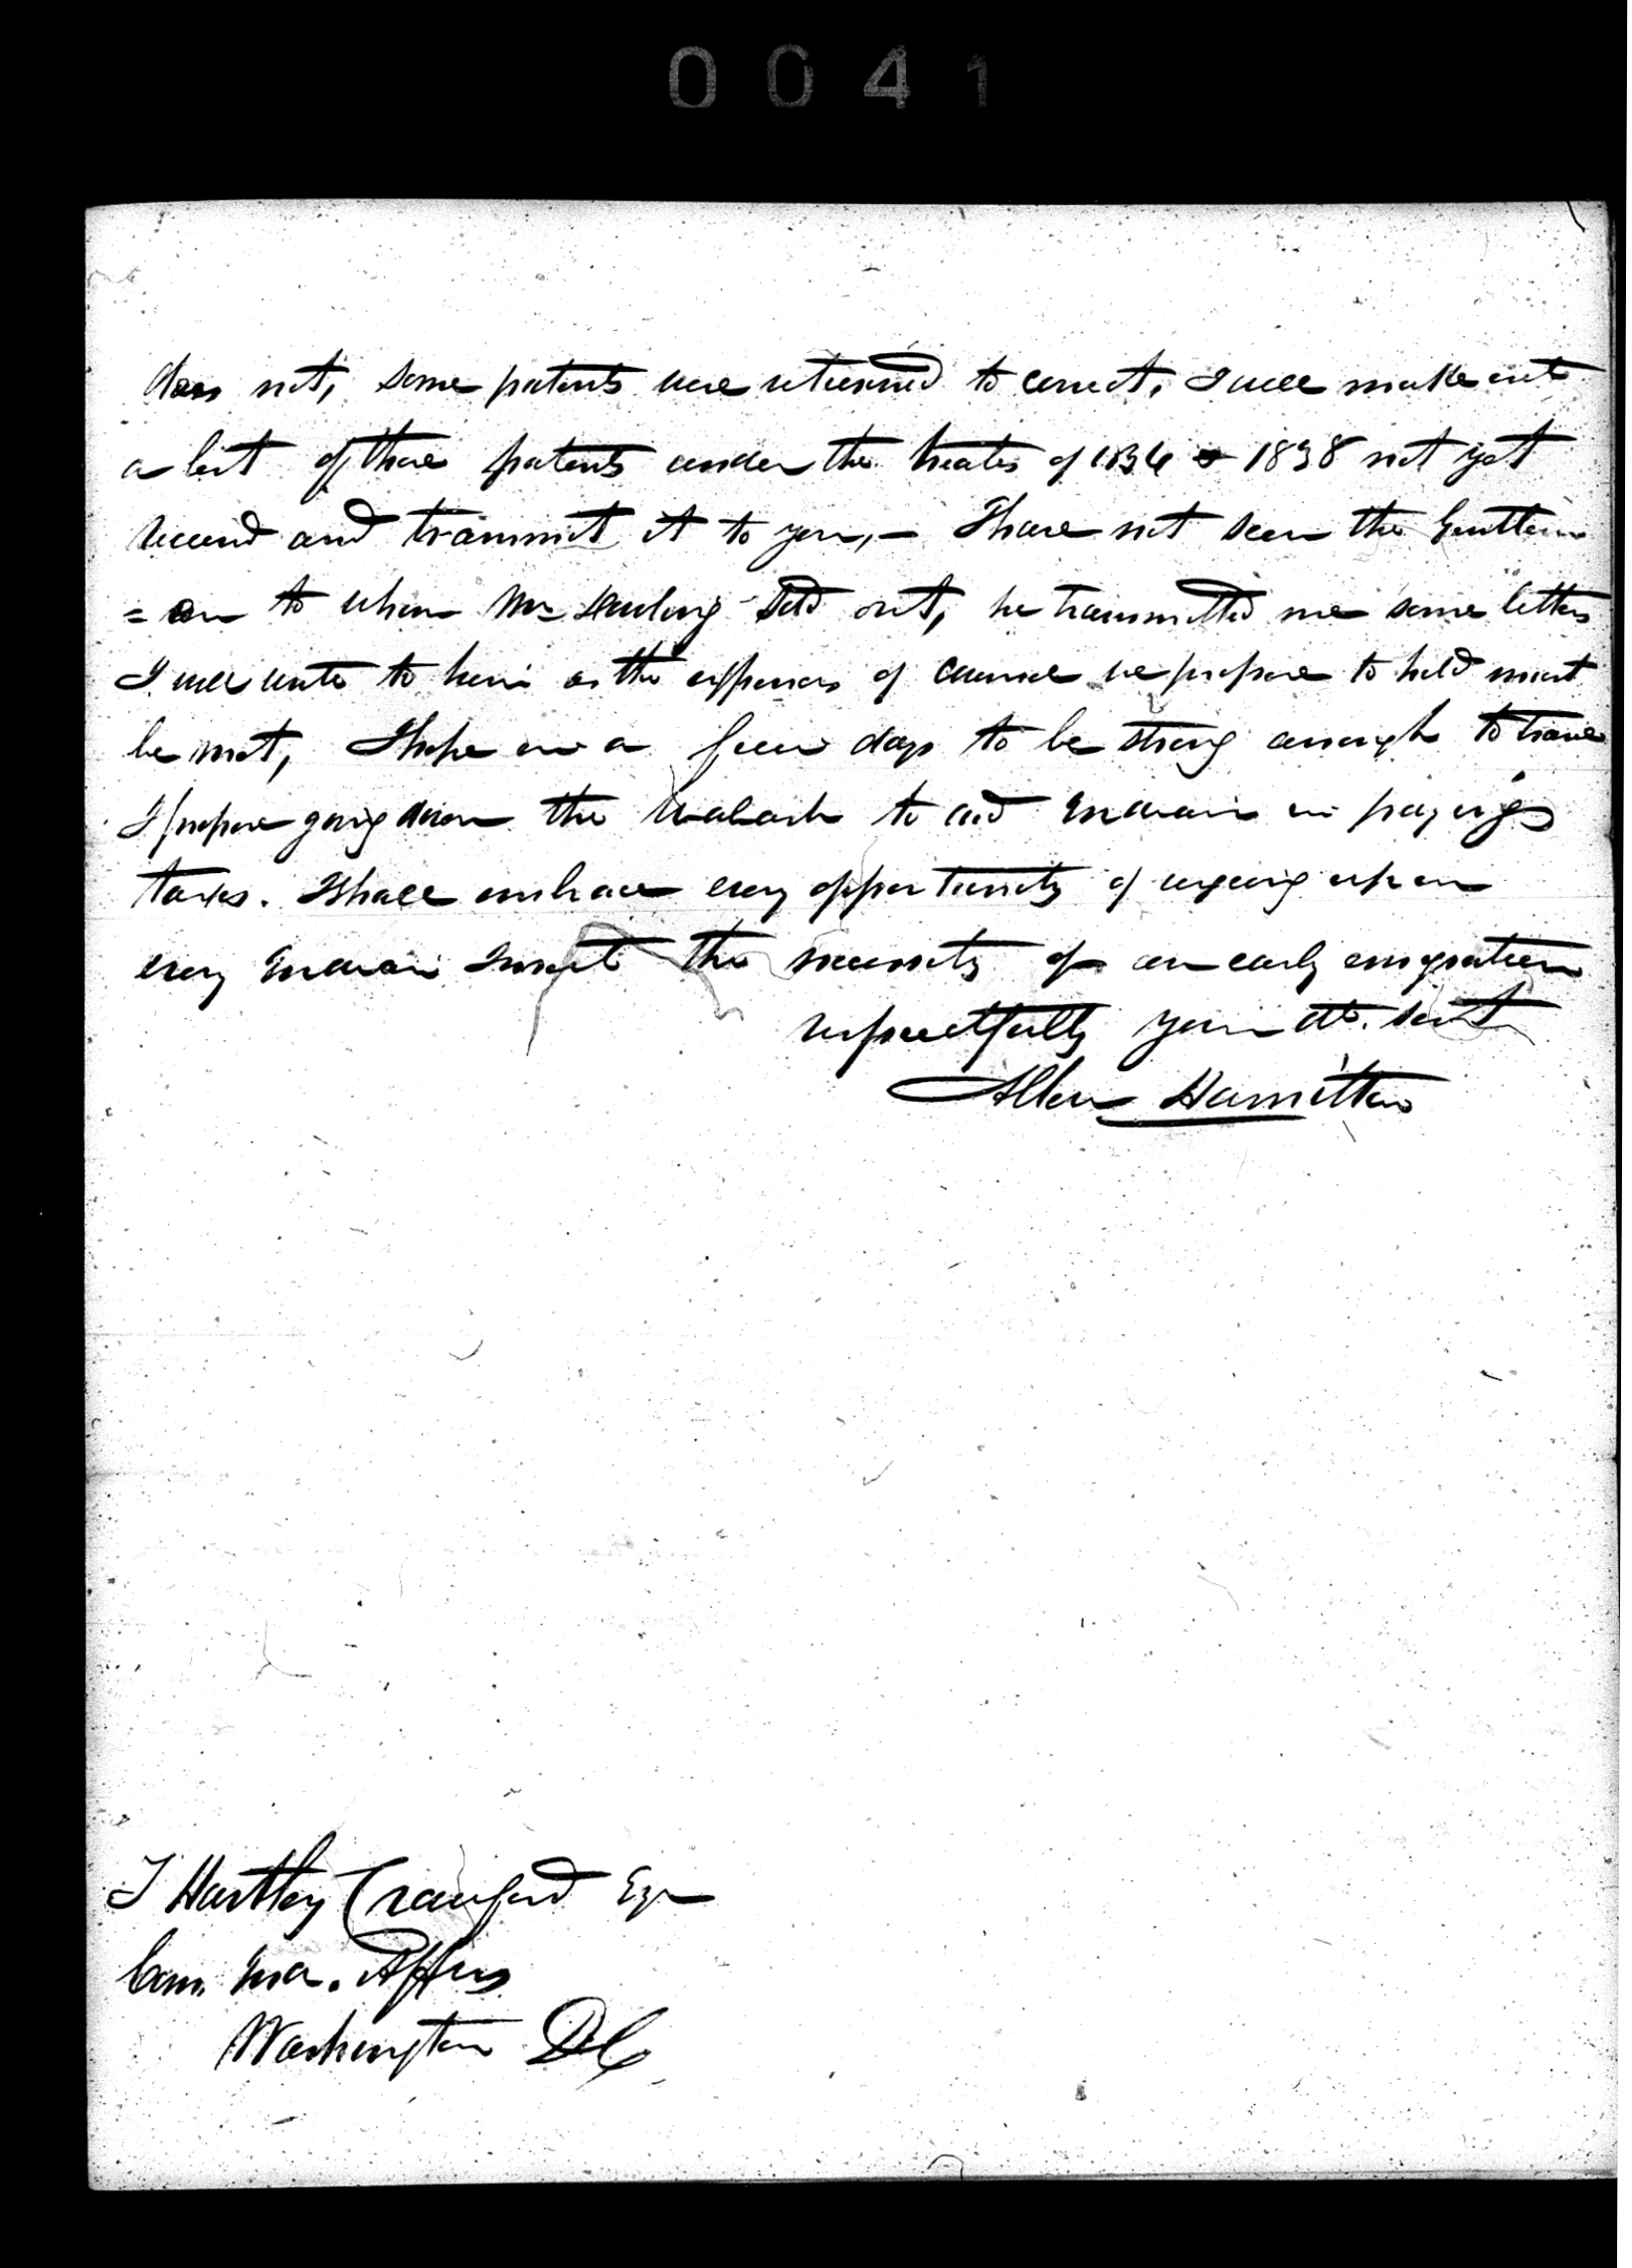 0041
does not, some patents were returned to correct, I will make out
a list of those patents under the treaties of 1834 & 1838 not yet
received and transmit it to you, — I have not seen the Gentlem
= an to whom Mr sold out, he transmitted me some letters
I will write to him as the expenses of council we propose to hold must
be met, I hope in a few days to be strong enough to travel
I propose going down the Wabash to aid Indians in paying
taxes. I shall embrace every opportunity of urging upon
every Indian I meet the necessity of an early emigration
respectfully your obt. servt
Allen Hamilton
T Hartley Crawford Esqr
Com. Ind. Affrs
Washington DC